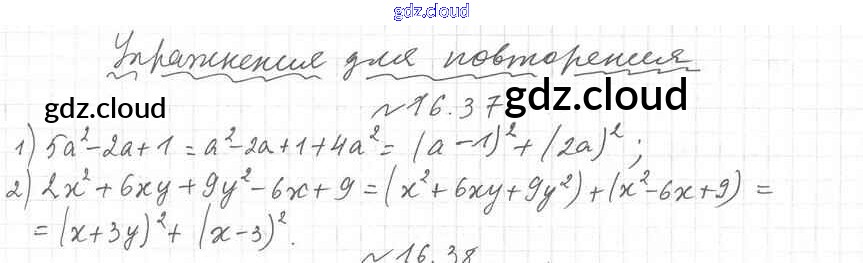 gdz.cloud
Упражнения для повторения
gdz.cloud
№16.37
gdz.cloud
1) 5a²-2a+1 = a²-2a+1+4a² = (a-1)²+(2a)²;
2) 2x²+6xy+9y²-6x+9 = (x²+6xy+9y²)+(x²-6x+9) =
= (x+3y)²+(x-3)².
№16.38